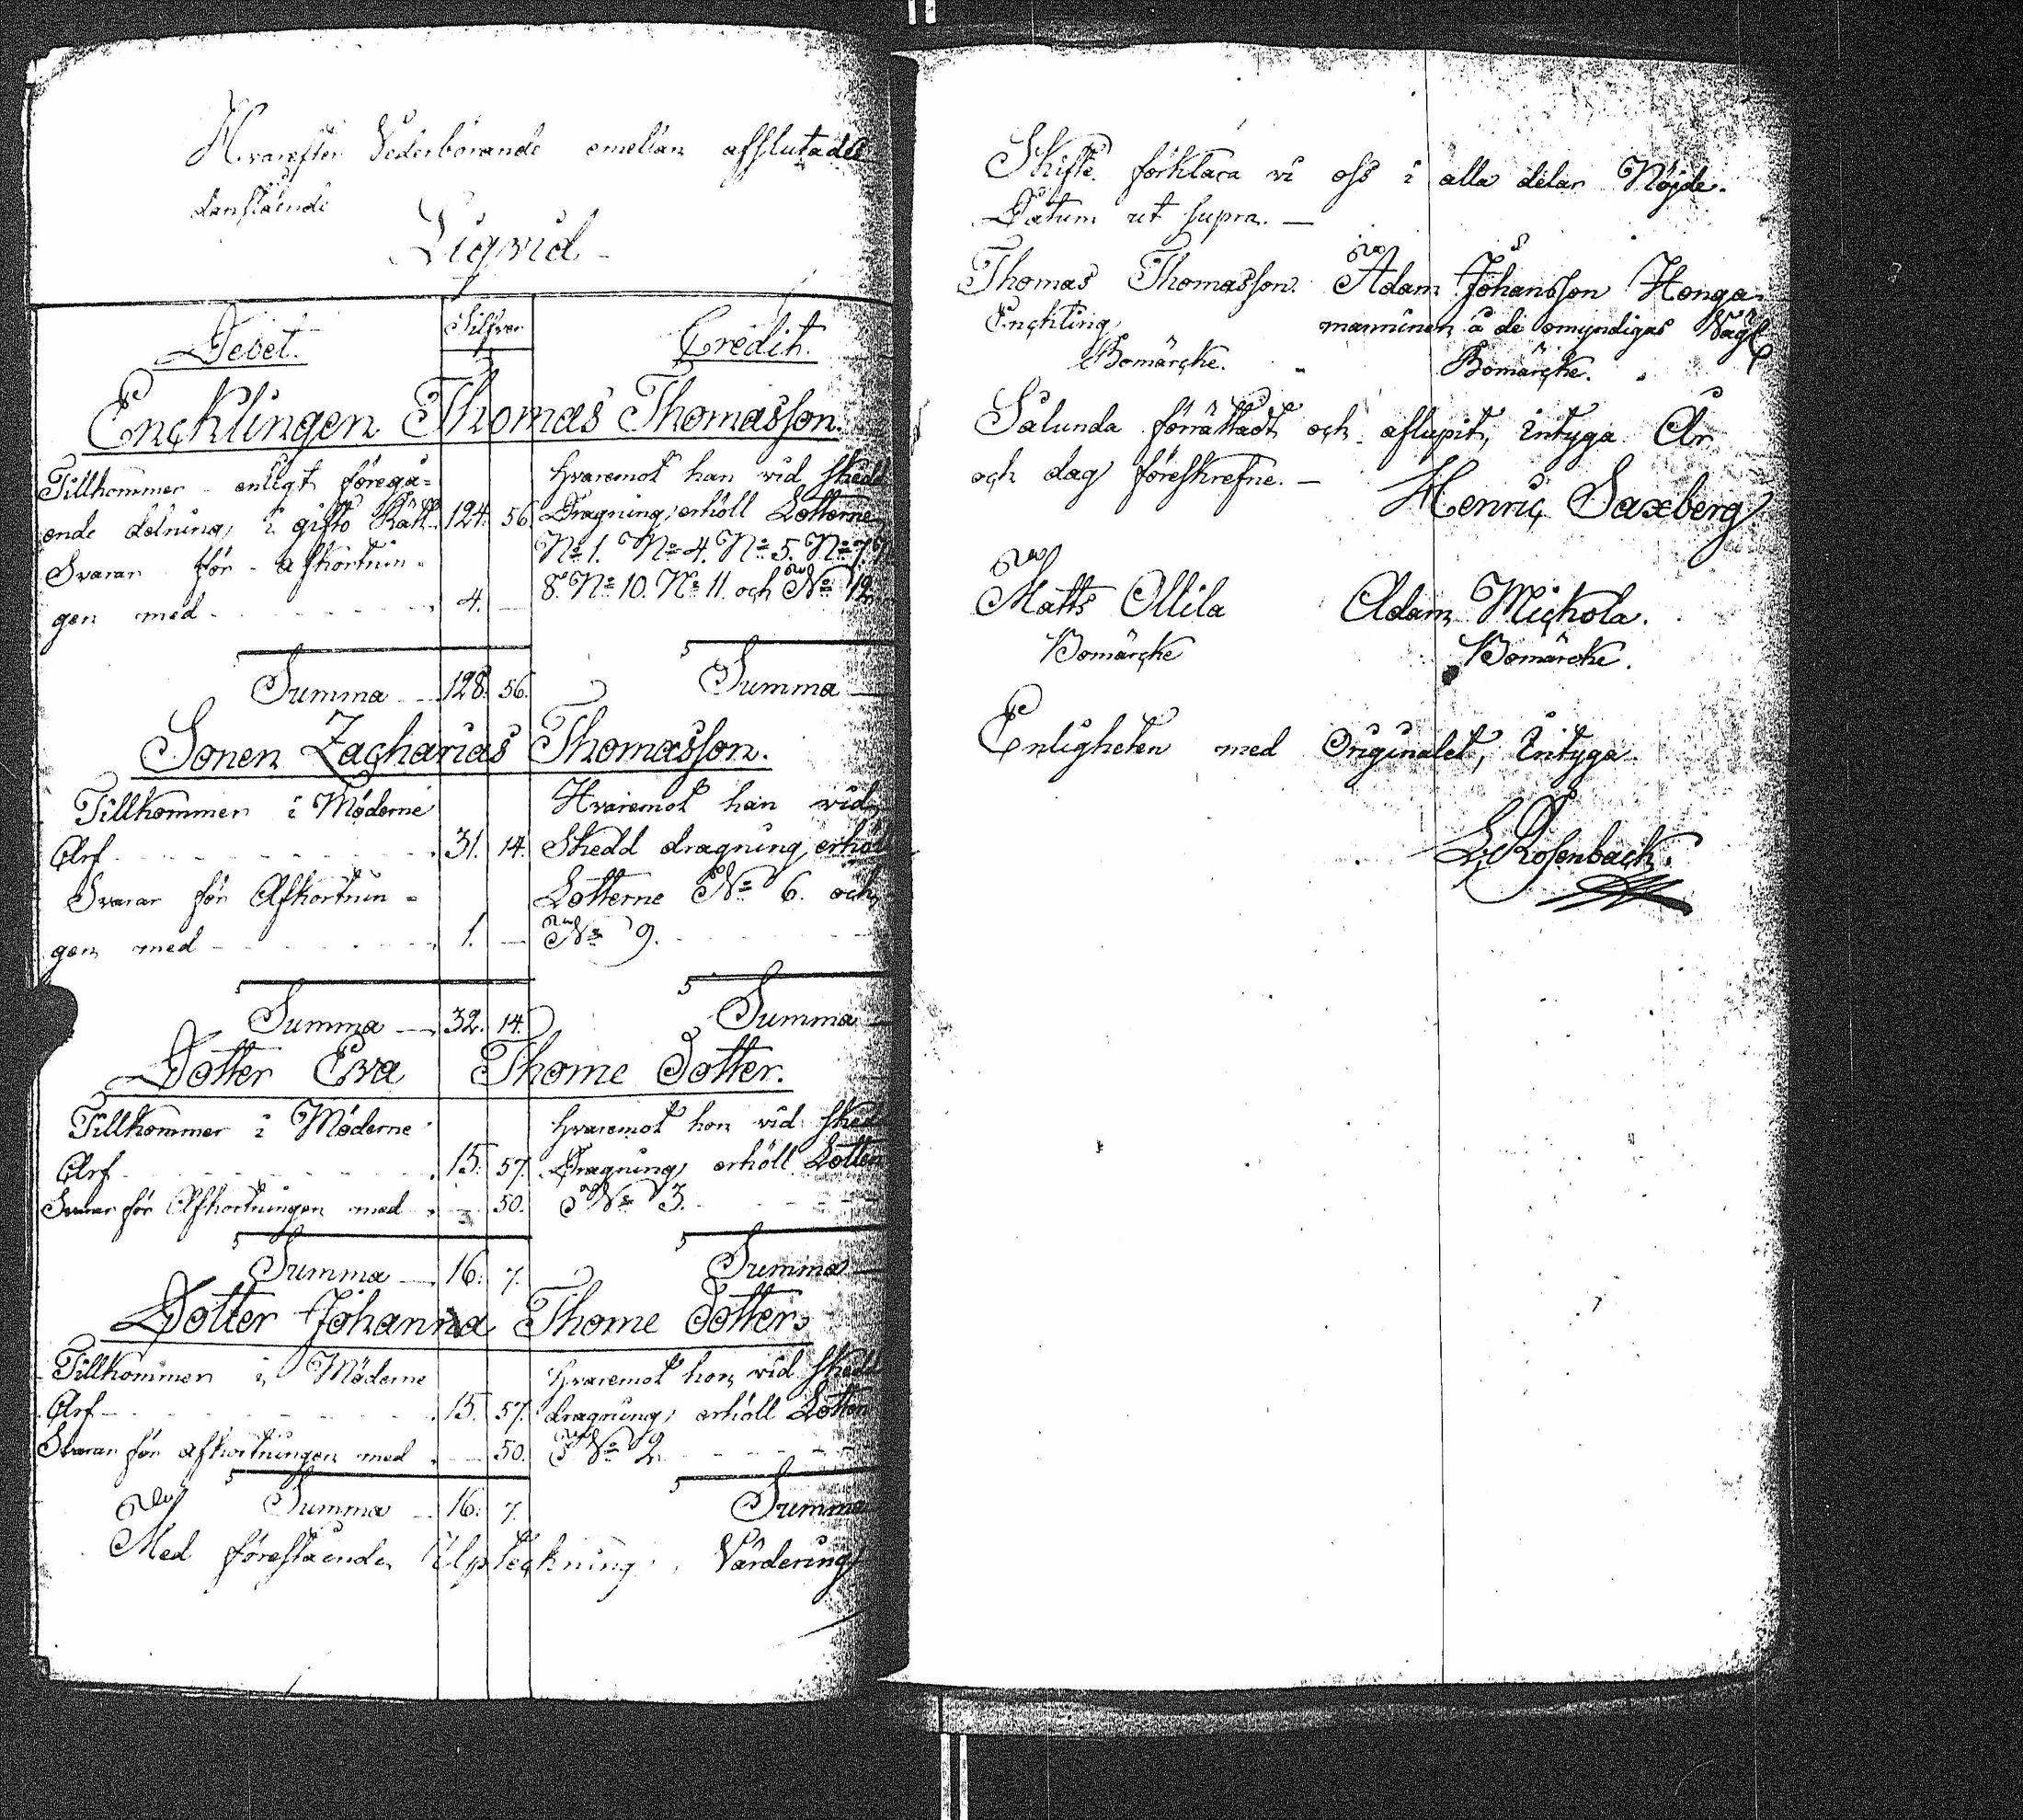 Hvarefter Vederbörande emellan afslutades
Danstående
Liqvid
Debet. Silfver Credit.
Encklingen Thomas Thomasson.
Tillkommer enligt föregå-
ende delning, i gifto Rätt 124. 56.
Svarar för afkortnin-
gen med 4. —
Hvaremot han vid skedd
Dragning, erhöll Lotterne
No 1. No 4. No 5. No 7.
8. No 10. No 11. och No 12
Summa 128. 56. Summa
Sonen Zacharias Thomasson.
Tillkommer i Möderne
Arf 31. 14.
Svarar för Afkortnin-
gen med 1. —
Hvaremot han vid
Skedd dragning, erhöll
Lotterne No 6. och
No 9.
Summa 32. 14. Summa
Dotter Eva Thome Dotter.
Tillkommer i Möderne
Arf 15. 57.
Svarar för Afkortningen med — 50.
Hvaremot hon vid sked
Dragning, erhöll Lotten
No 3.
Summa 16. 7. Summa
Dotter Johanna Thome Dotter
Tillkommer i Möderne
Arf 15. 57.
Svarar för afkortningen med — 50.
Hvaremot hon vid skedd
dragning, erhöll Lotten
No 2.
Summa 16. 7. Summa
Med förestående Upteckning, Värdering
Skifte förklara vi oss i alla delar Nöjde.
Datum ut supra. —
Thomas Thomasson. Adam Johansson Honga-
Enckling, manninen å de omyndigas Vägl
Bomärcke. Bomärcke.
Sålunda förrättadt och aflupit, intyga År
och dag föreskrefne. — Henric Saxberg
Matts Ollila Adam Mickola.
Bomärcke Bomärcke.
Enligheten med Originalet, Intyga.
L. Rosenback.